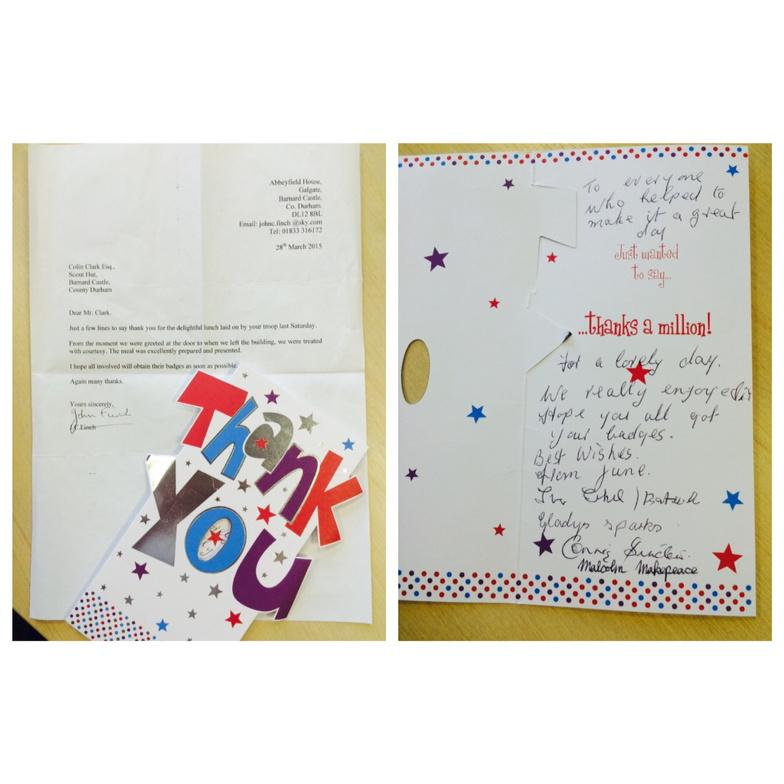 Abbeyfield House,
Galgate,
Barnard Castle,
Co. Durham.
DL12 8BL
Email: johnc.finch @sky.com
Tel: 01833 316172
28th March 2015
Colin Clark Esq.,
Scout Hut,
Barnard Castle,
County Durham
Dear Mr. Clark.
Just a few lines to say thank you for the delightful lunch laid on by your troop last Saturday.
From the moment we were greeted at the door to when we left the building, we were treated
with courtesy. The meal was excellently prepared and presented.
I hope all involved will obtain their badges as soon as possible.
Again many thanks.
Yours sincerely,
John Finch
Finch
Thank
You
To everyone
who helped to
make it a great
day
Just wanted
to say...
...thanks a million!
For a lovely day.
We really enjoyed it
Hope you all got
your badges.
Best Wishes.
from June.
Gladys sparks
Connie
Malcolm Makepeace